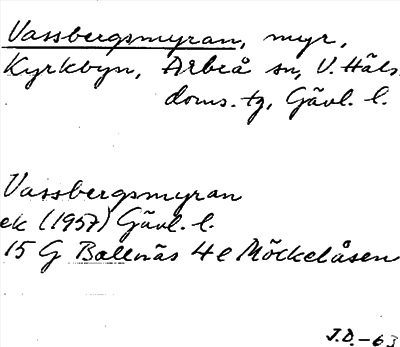 Vassbergsmyran, myr,
Kyrkbyn, Arbrå sn, V. Häls.
doms. tg, Gävl. l.
Vassbergsmyran
ek (1957) Gävl. l.
15 G Bollnäs 4e Möckelåsen
J.D. -63